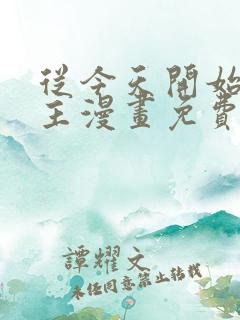 從今天開始
王漫畫免費
譚耀文
未經同意禁止轉載